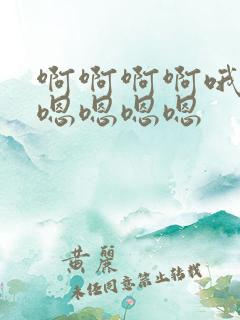 啊啊啊啊哦
嗯嗯嗯嗯
黄丽
未经同意禁止转载